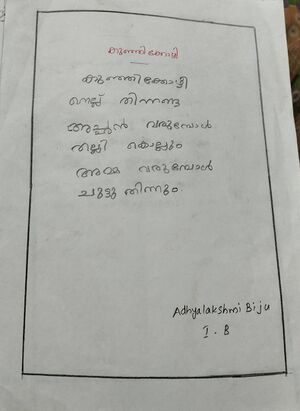 കുഞ്ഞിക്കോഴി
കുഞ്ഞിക്കോഴി
നെല്ല് തിന്നണ്ട
അച്ഛൻ വരുമ്പോൾ
തല്ലി കൊല്ലും
അമ്മ വരുമ്പോൾ
ചുട്ടു തിന്നും
Adhyalakshmi Biju
I . B